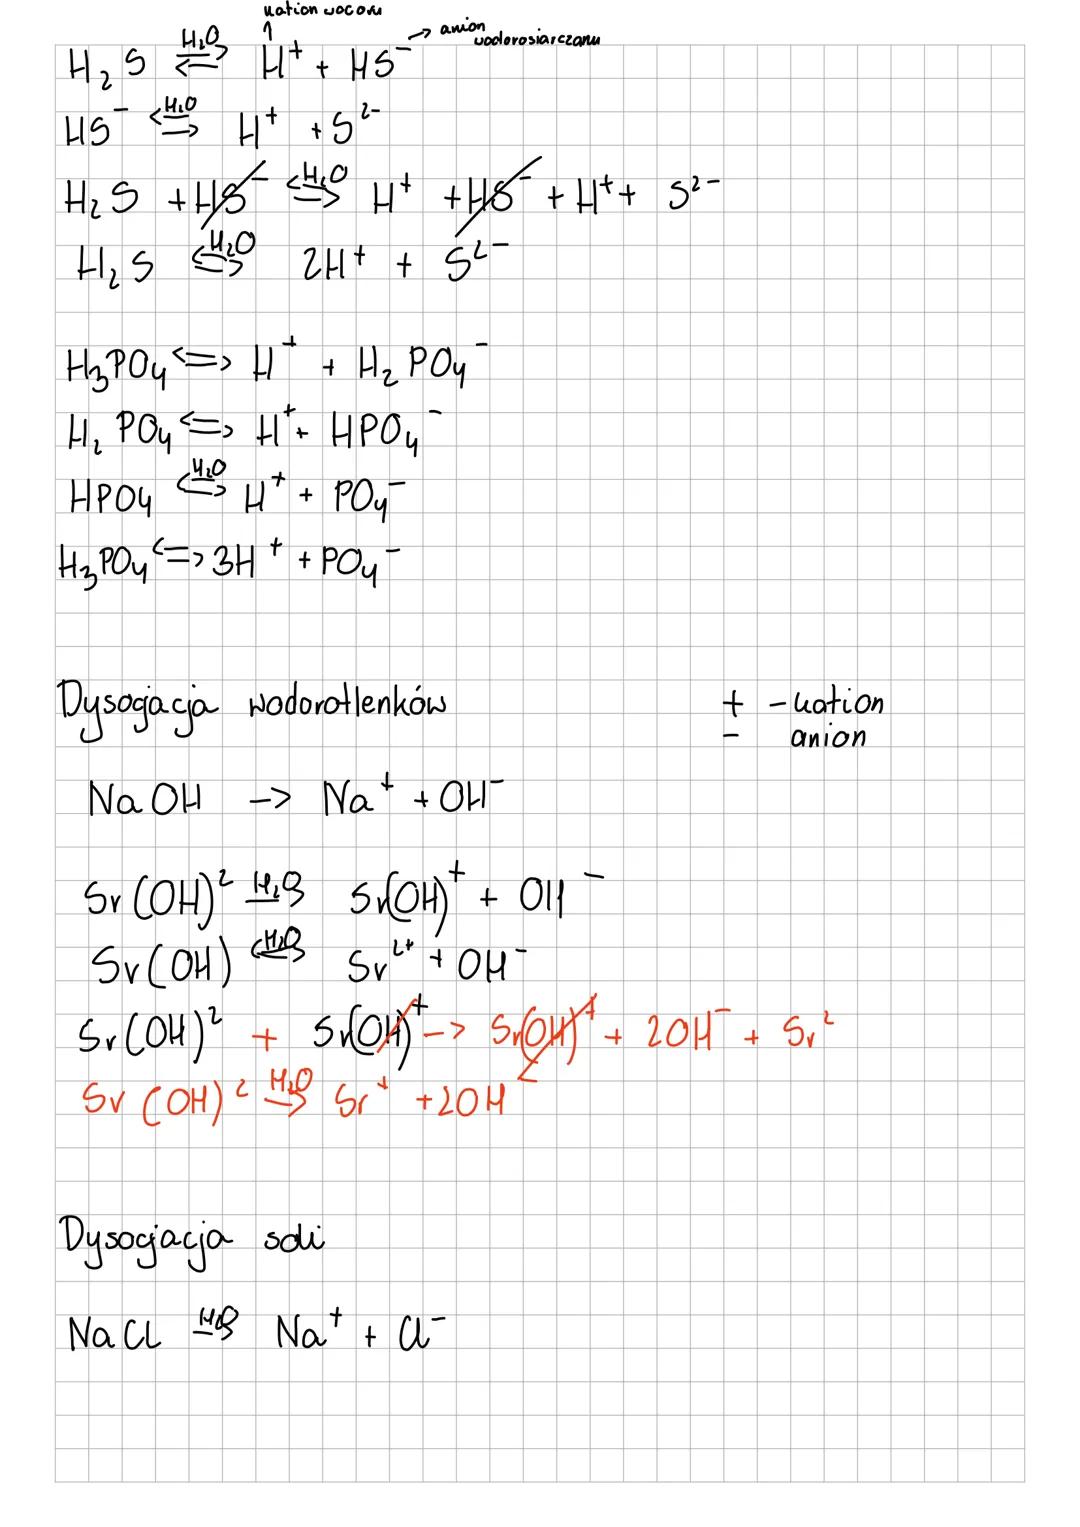 kation wocoru
anion wodorosiarczanu
H₂S ⇌ H₂O H⁺ + HS⁻
HS⁻ ⇌ H₂O H⁺ + S²⁻
H₂S + HS⁻ ⇌ H₂O H⁺ + HS⁻ + H⁺ + S²⁻
H₂S ⇌ H₂O 2H⁺ + S²⁻
H₃PO₄ <=> H⁺ + H₂PO₄⁻
H₂PO₄ <=> H⁺ + HPO₄⁻
HPO₄ ⇌ H₂O H⁺ + PO₄⁻
H₃PO₄ <=> 3H⁺ + PO₄⁻
Dysocjacja wodorotlenków
+ - kation
- anion
NaOH -> Na⁺ + OH⁻
Sr(OH)² H₂O → Sr(OH)⁺ + OH⁻
Sr(OH) ⇌ H₂O Sr²⁺ + OH⁻
Sr(OH)² + Sr(OH)⁺ -> Sr(OH)⁺ + 2OH⁻ + Sr²
Sr(OH)² H₂O → Sr⁺ + 2OH
Dysocjacja soli
NaCl H₂O → Na⁺ + Cl⁻